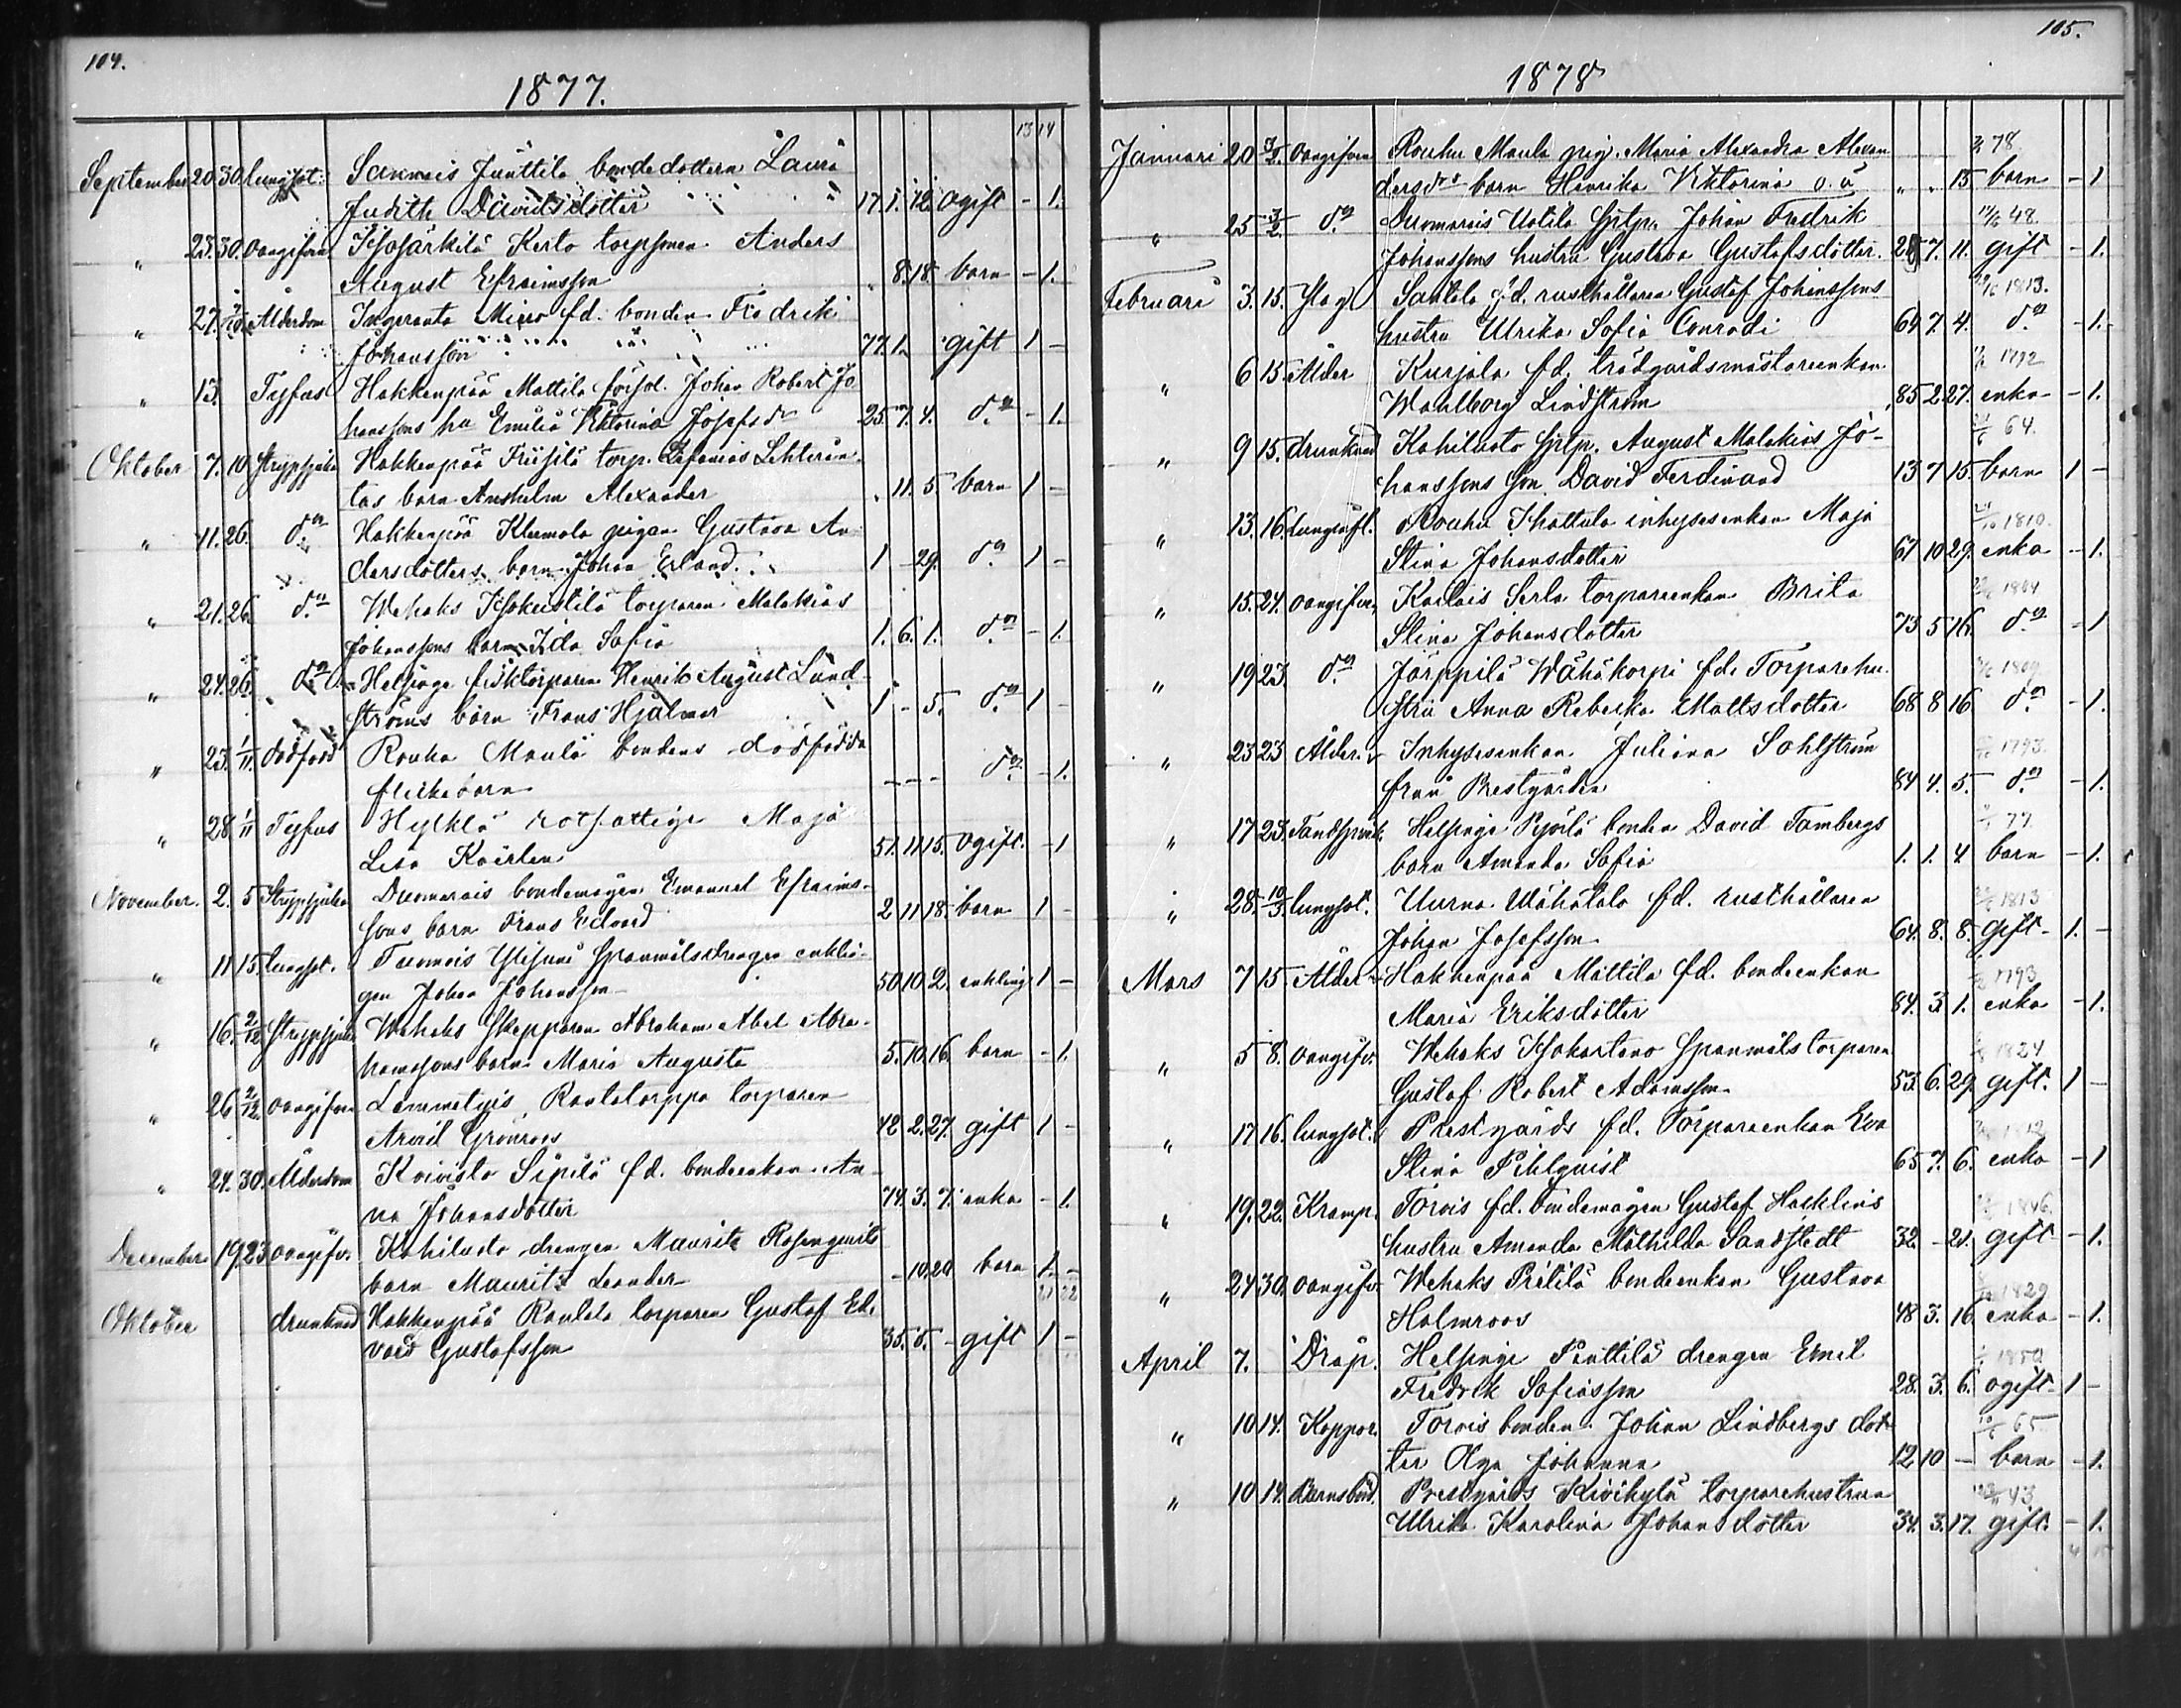 104.
1877.
13 14
September 20. 30. lungsot. Sannais Junttila bondedottern Laura
Judith Davidsdotter 17. 1. 12. ogift - 1.
" 23. 30. oangifven Isosärkilä Kerto torpsonen Anders
August Efraimsson " 8. 18. barn - 1.
" 27. Ålderdom Ingeranta Miero fd. bonden Fredrik
Johansson 77. 1. gift 1 -
" 13. Tyfus Hakkenpää Mattila Johan Robert Jo
hanssons hu Emilia Viktorina Josefsdr 25. 7. 4. do - 1.
Oktober 7. 10 strypsjuka Hakkenpää Friisilä torp. Zefanias Lehterän
tas barn Anshelm Alexander " 11. 5 barn 1 -
" 11. 26. do Hakkenpää Klemola pigan Gustava An
dersdotters barn Johan Erland 1 - 29. do 1 -
" 21. 26. do Wehaks Isokustilä torparen Malakias
Johanssons barn Ida Sofia 1. 6. 1. do - 1.
" 24. 26. do Helsinge Henrik August Lund
ströms barn Frans Hjalmar 1 - 5. do 1 -
" 23. 1/11. dödfödd Rouhu Maula bondens dödfödda
flickebarn - - - do - 1.
" 28. 1/11 Tyfus Hylkilä rotfattige Maja
Lisa Kairlin 51. 11 15. ogift. - 1
November. 2. 5 Strypsjuka Duomarais bondemågen Emanuel Efraims-
sons barn Frans Edvard 2 11 18. barn 1 -
" 11 15. lungsot. Tuomois Ylisuni Spanmålsdrengen enklin-
gen Johan Johansson 50 10. 2. enkling 1 -
" 16. 2/12 Strypsjuka Wehaks Skepparen Abraham Abel Abra-
hamssons barn Maria Augusta 5. 10. 16. barn - 1.
" 26 2/12. oangifven Lemmetyis Rantatorppa torparen
Arvid Grönroos 42 2. 27. gift 1 -
" 24. 30. Ålderdom Koivisto Sipilä fd. bondeenkan An-
na Johansdotter 74. 3. 7. enka - 1.
December 19. 23 oangifv. Kahiluoto drengen Mauritz Rosenqvists
barn Mauritz Leander - 10. 20 barn 1. -
Oktober drunknad Hakkenpää Rantala torparen Gustaf Ed-
vard Gustafsson 35. 5. - gift 1 -
105.
1878
Januari 20 3/2. oangifven Rouhu Maula pig. Maria Alexandra Alexan
dersdrs barn Henrika Viktorina o. ä " " 15 barn - 1
78.
" 25 3/2. do Duomarais Uotila Sptp. Johan Fredrik
Johanssons hustru Gustava Gustafsdotter. 28 7. 11. gift - 1.
48.
Februari 3. 15. slag Santala f.d. rusthållaren Gustaf Johanssons
hustru Ulrika Sofia Conradi 64 7. 4. do - 1.
1813.
" 6 15 Ålder Kurjala fd. trädgårdsmästareenkan
Wahlborg Lindström 85 2. 27. enka - 1.
1792
" 9 15. drunknad Kahiluoto Sptp. August Malakias Jo-
hanssons son David Ferdinand 13 7 15. barn 1 -
64.
" 13. 16. lunginfl. Rouhu Khattula inhysesenkan Maja
Stina Johansdotter 67 10 29. enka - 1.
1810.
" 15. 24. oangifven Karlais Serla torpareenkan Brita
Stina Johansdotter 73 5 16. do - 1
1804
" 19 23. do Järppilä Wähäkorpi fd. Torparehu-
stru Anna Rebecka Mattsdotter 68 8 16 do - 1.
1809
" 23 23 Ålder Inhysesenkan Juliana Sahlström
från Prestgården 84 4. 5. do - 1.
1793.
" 17 23. Tandsprick. Helsinge Pyörlä bonden David Tambergs
barn Amanda Sofia 1. 1. 4 barn - 1.
77
" 28. 10/3. lungsot. Uurna Wähätalo fd. rusthållaren
Johan Josefsson 64. 8. 8. gift - 1. -
1813
Mars 7 15 Ålder Hakkenpää Mattila fd. bondeenkan
Maria Eriksdotter 84. 3 1. enka - 1.
1793
" 5 8. oangifv. Wehaks Isokartano Spanmålstorparen
Gustaf Robert Adamsson 53. 6. 29. gift. 1 -
1824
" 17 16. lungsot. Prestgårds fd. Torpareenkan Eva
Stina Pihlqvist 65 7. 6. enka - 1
1812
" 19. 22. Kramp. Torois fd. bondemågen Gustaf Hacklins
hustru Amanda Mathilda Sandstedt 32 - 21. gift - 1.
1846.
" 24 30. oangifv. Wehaks Pritilä bondeenkan Gustava
Holmroos 48 3. 16. enka - 1.
1829
April 7. Dråp. Helsinge Penttilä drengen Emil
Fredrik Sofiasson 28. 3. 6. ogift 1 -
1850
" 10 14. Koppor. Torois bonden Johan Lindbergs dot-
ter Olga Johanna 12 10 - barn - 1.
65
" 10 14. Barnsbörd. Prestgårds Kivikylä torparehustrun
Ulrika Karolina Johansdotter 34. 3. 17. gift. - 1.
43